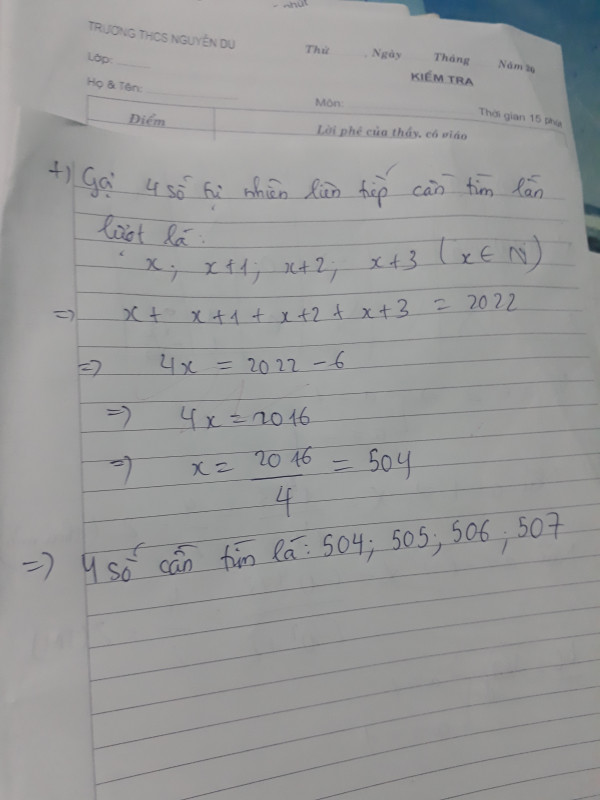 TRƯỜNG THCS NGUYỄN DU
Thứ Ngày Tháng Năm 20
Lớp:
KIỂM TRA
Họ & Tên:
Môn:
Thời gian 15 phút
Điểm
Lời phê của thầy, cô giáo
+) Gọi 4 số tự nhiên liên tiếp cần tìm lần
lượt là:
x; x+1; x+2; x+3 (x ∈ N)
=> x + x+1 + x+2 + x+3 = 2022
=> 4x = 2022 - 6
=> 4x = 2016
=> x = 2016/4 = 504
=> 4 số cần tìm là: 504; 505; 506; 507